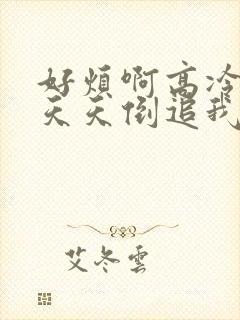 好煩啊高冷
天天倒追我
艾冬雲